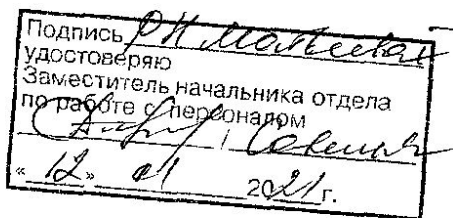 Подпись Р.Н.
удостоверяю
Заместитель начальника отдела
по работе с персоналом
«12» 01 2021 г.